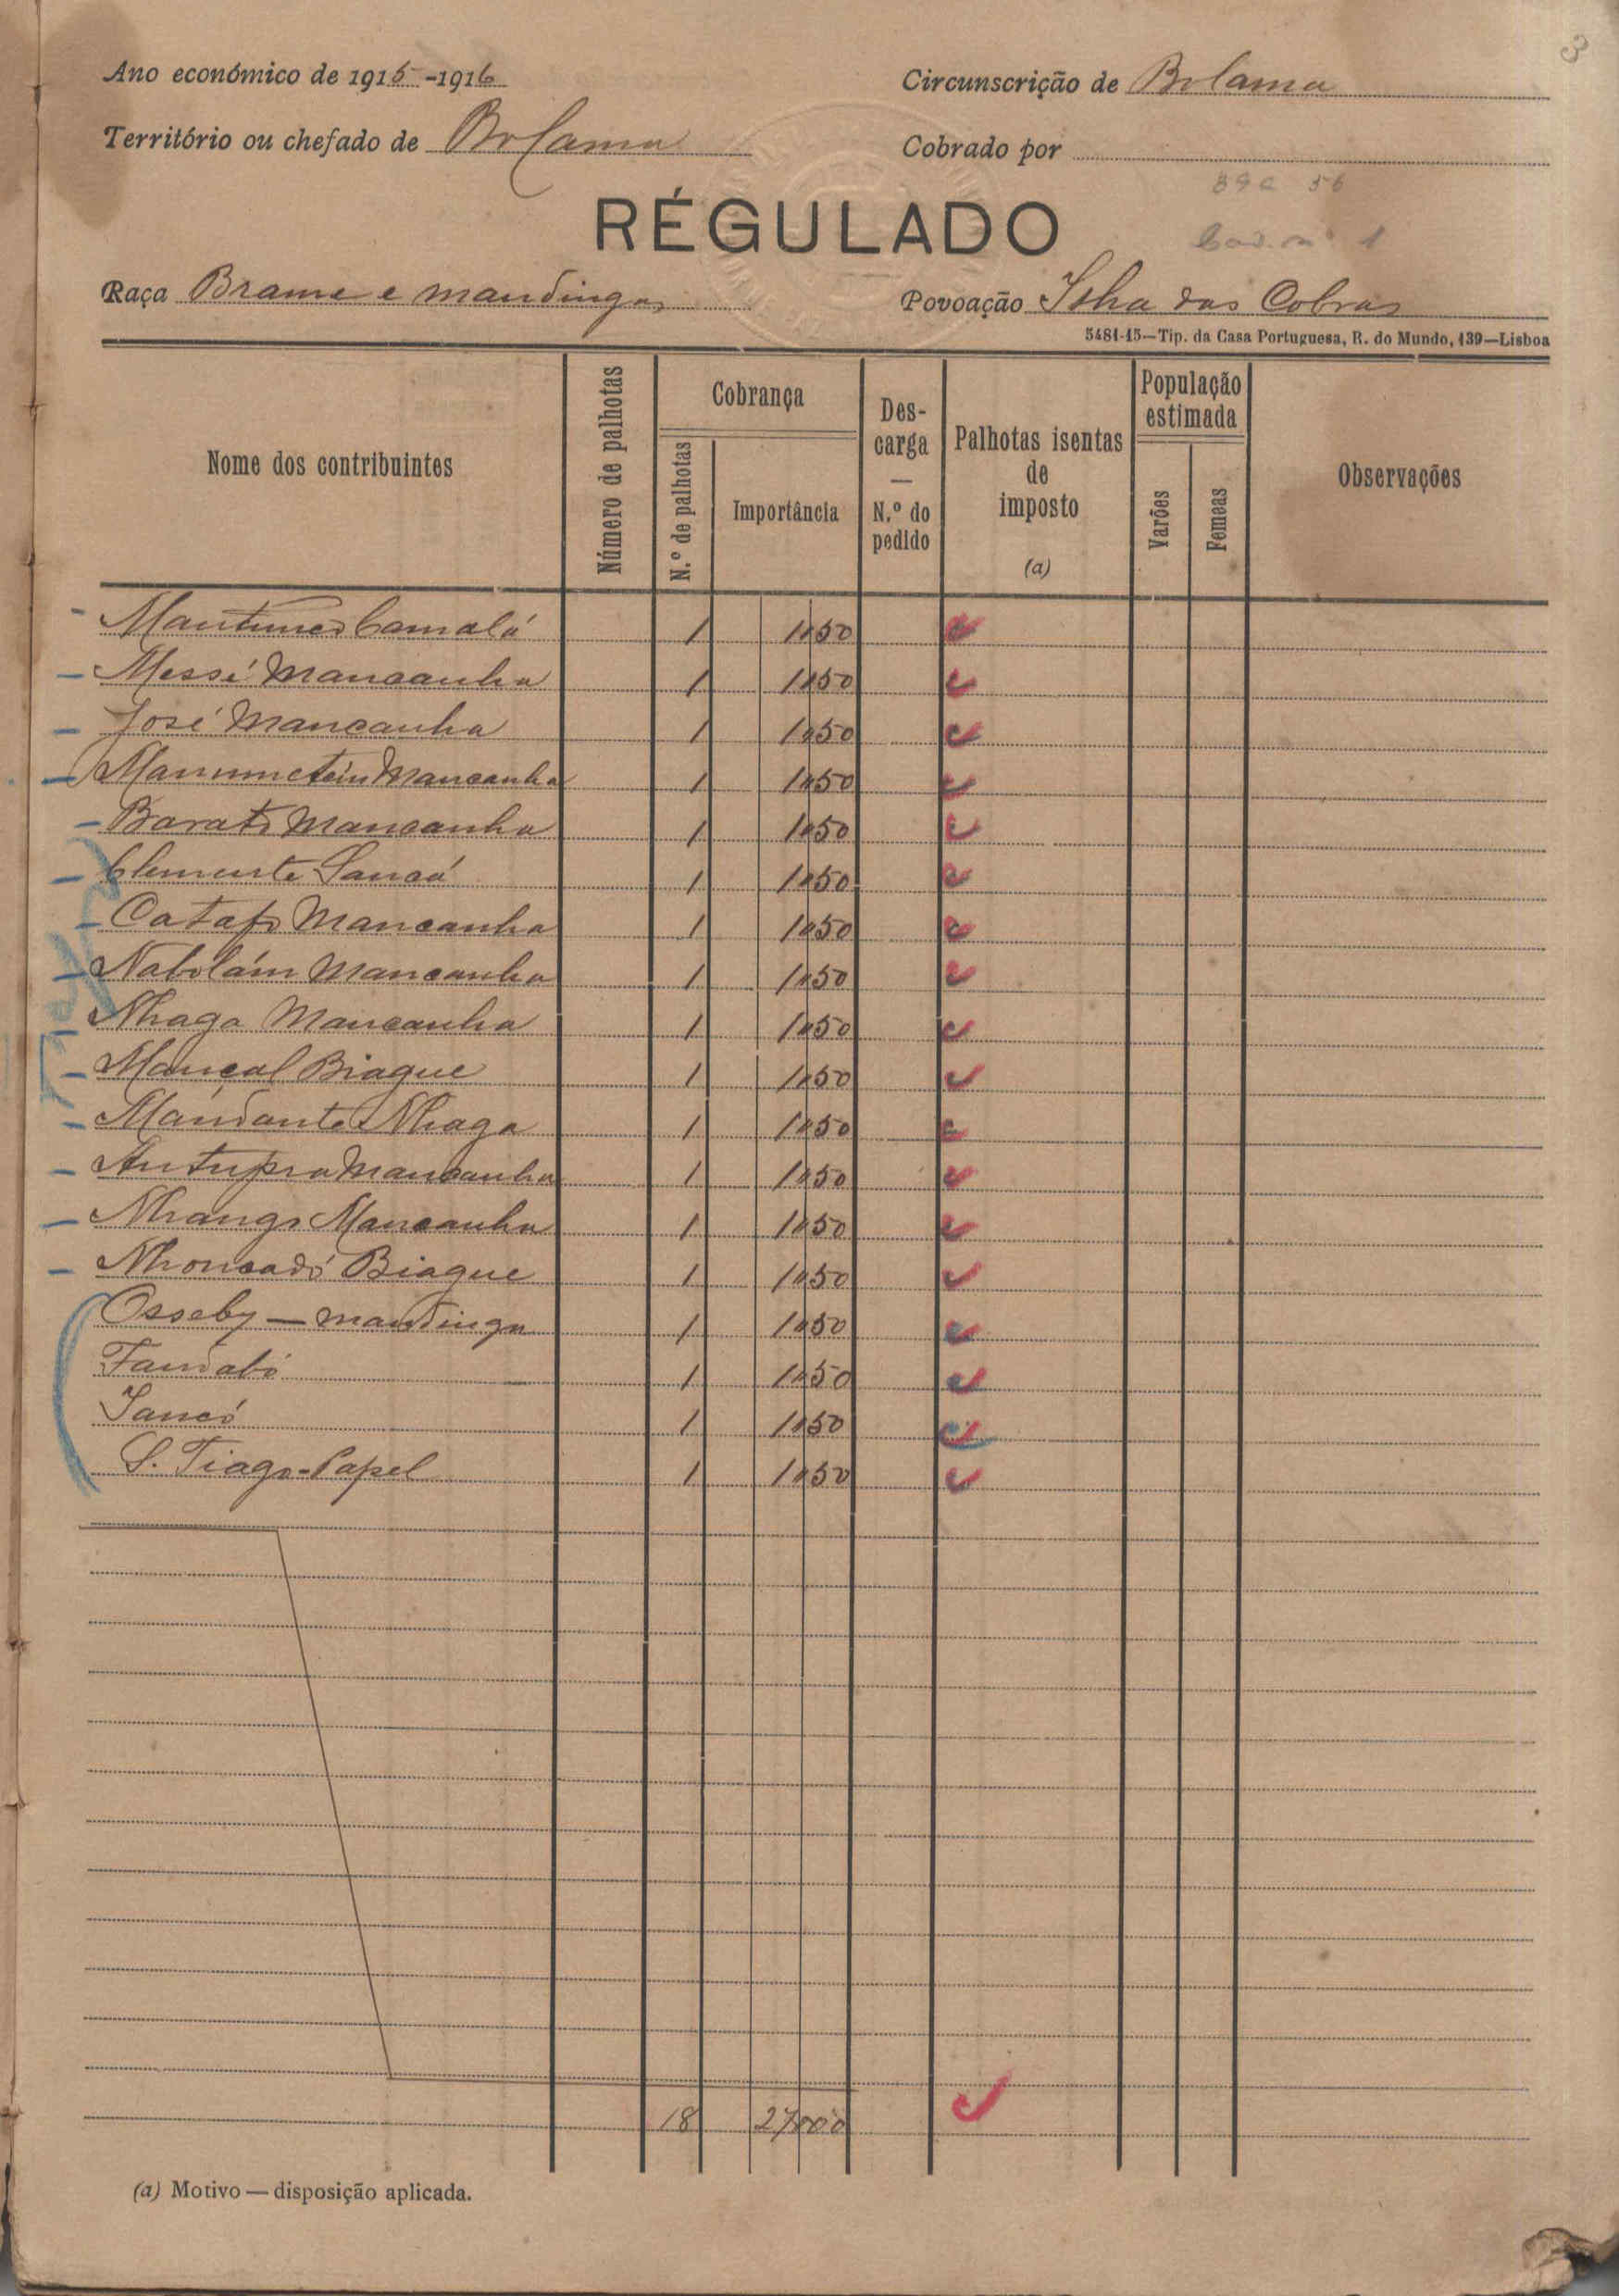 3
Ano económico de 1915-1916
Circunscrição de Bolama
Território ou chefado de Bolama
Cobrado por
RÉGULADO
Cad. nº 1
Raça Brame e mandingas
Povoação Ilha das Cobras
5481-15—Tip. da Casa Portuguesa, R. do Mundo, 139—Lisboa
Nome dos contribuintes
Número de palhotas
Cobrança
N.º de palhotas
Importância
Des-
carga
—
N.º do
pedido
Palhotas isentas
de
imposto
(a)
População
estimada
Varões
Femeas
Observações
Camalá 1 1$50
Messé Mancanha 1 1$50
José Mancanha 1 1$50
Mancanha 1 1$50
Barato Mancanha 1 1$50
Clemente Sancá 1 1$50
Catafo Mancanha 1 1$50
Nabolám Mancanha 1 1$50
Nhaga Mancanha 1 1$50
Mancal Biague 1 1$50
Mandante Nhaga 1 1$50
Antupra Mancanha 1 1$50
Nhango Mancanha 1 1$50
Nhoncadó Biague 1 1$50
Osseby — mandinga 1 1$50
Fandabó 1 1$50
Sancó 1 1$50
S. Tiago-Papel 1 1$50
18 27$00
(a) Motivo — disposição aplicada.